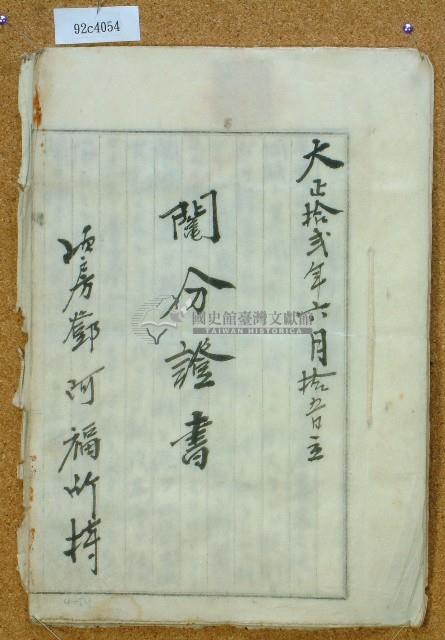 92c4054
大正拾弍年六月拾五日立
鬮分證書
房鄧阿福所持
國史館臺灣文獻館
TAIWAN HISTORICA